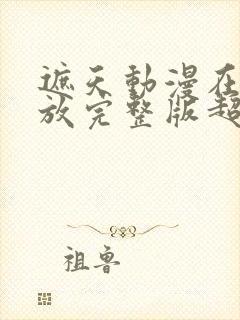 遮天動漫在
放完整版超
祖魯